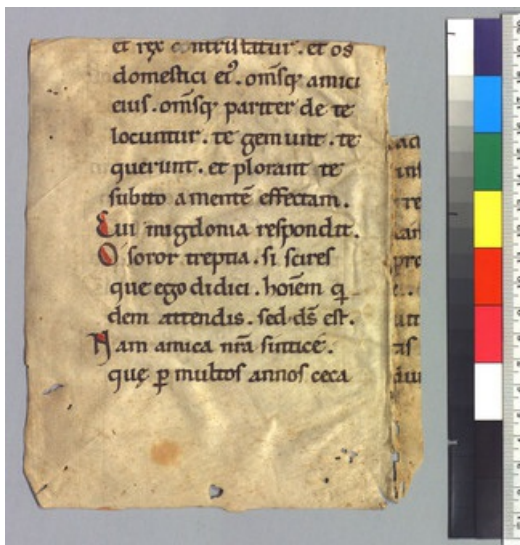 et rex contristatur . et os
domestici ei⁹. om̄sq; amici
eius . om̄sq; pariter de te
locuntur . te gemunt . te
querunt . et plorant te
subito a mentē effectam .
Cui migdonia respondit .
O soror treptia . si scires
que ego didici . hoīem q̄
dem attendis . sed ds̄ est .
Nam amica nr̄a sinticē .
quę ꝑ multos annos ceca